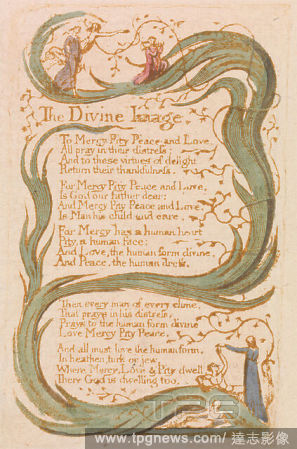 The Divine Image
To Mercy Pity Peace and Love,
All pray in their distress:
And to these virtues of delight
Return their thankfulness.
For Mercy Pity Peace and Love,
Is God our father dear:
And Mercy Pity Peace and Love,
Is Man his child and care.
For Mercy has a human heart
Pity, a human face:
And Love, the human form divine,
And Peace, the human dress.
Then every man of every clime,
That prays in his distress,
Prays to the human form divine
Love Mercy Pity Peace.
And all must love the human form,
In heathen, turk or jew.
Where Mercy, Love & Pity dwell,
There God is dwelling too.
TPG
www.tpgnews.com / 達志影像